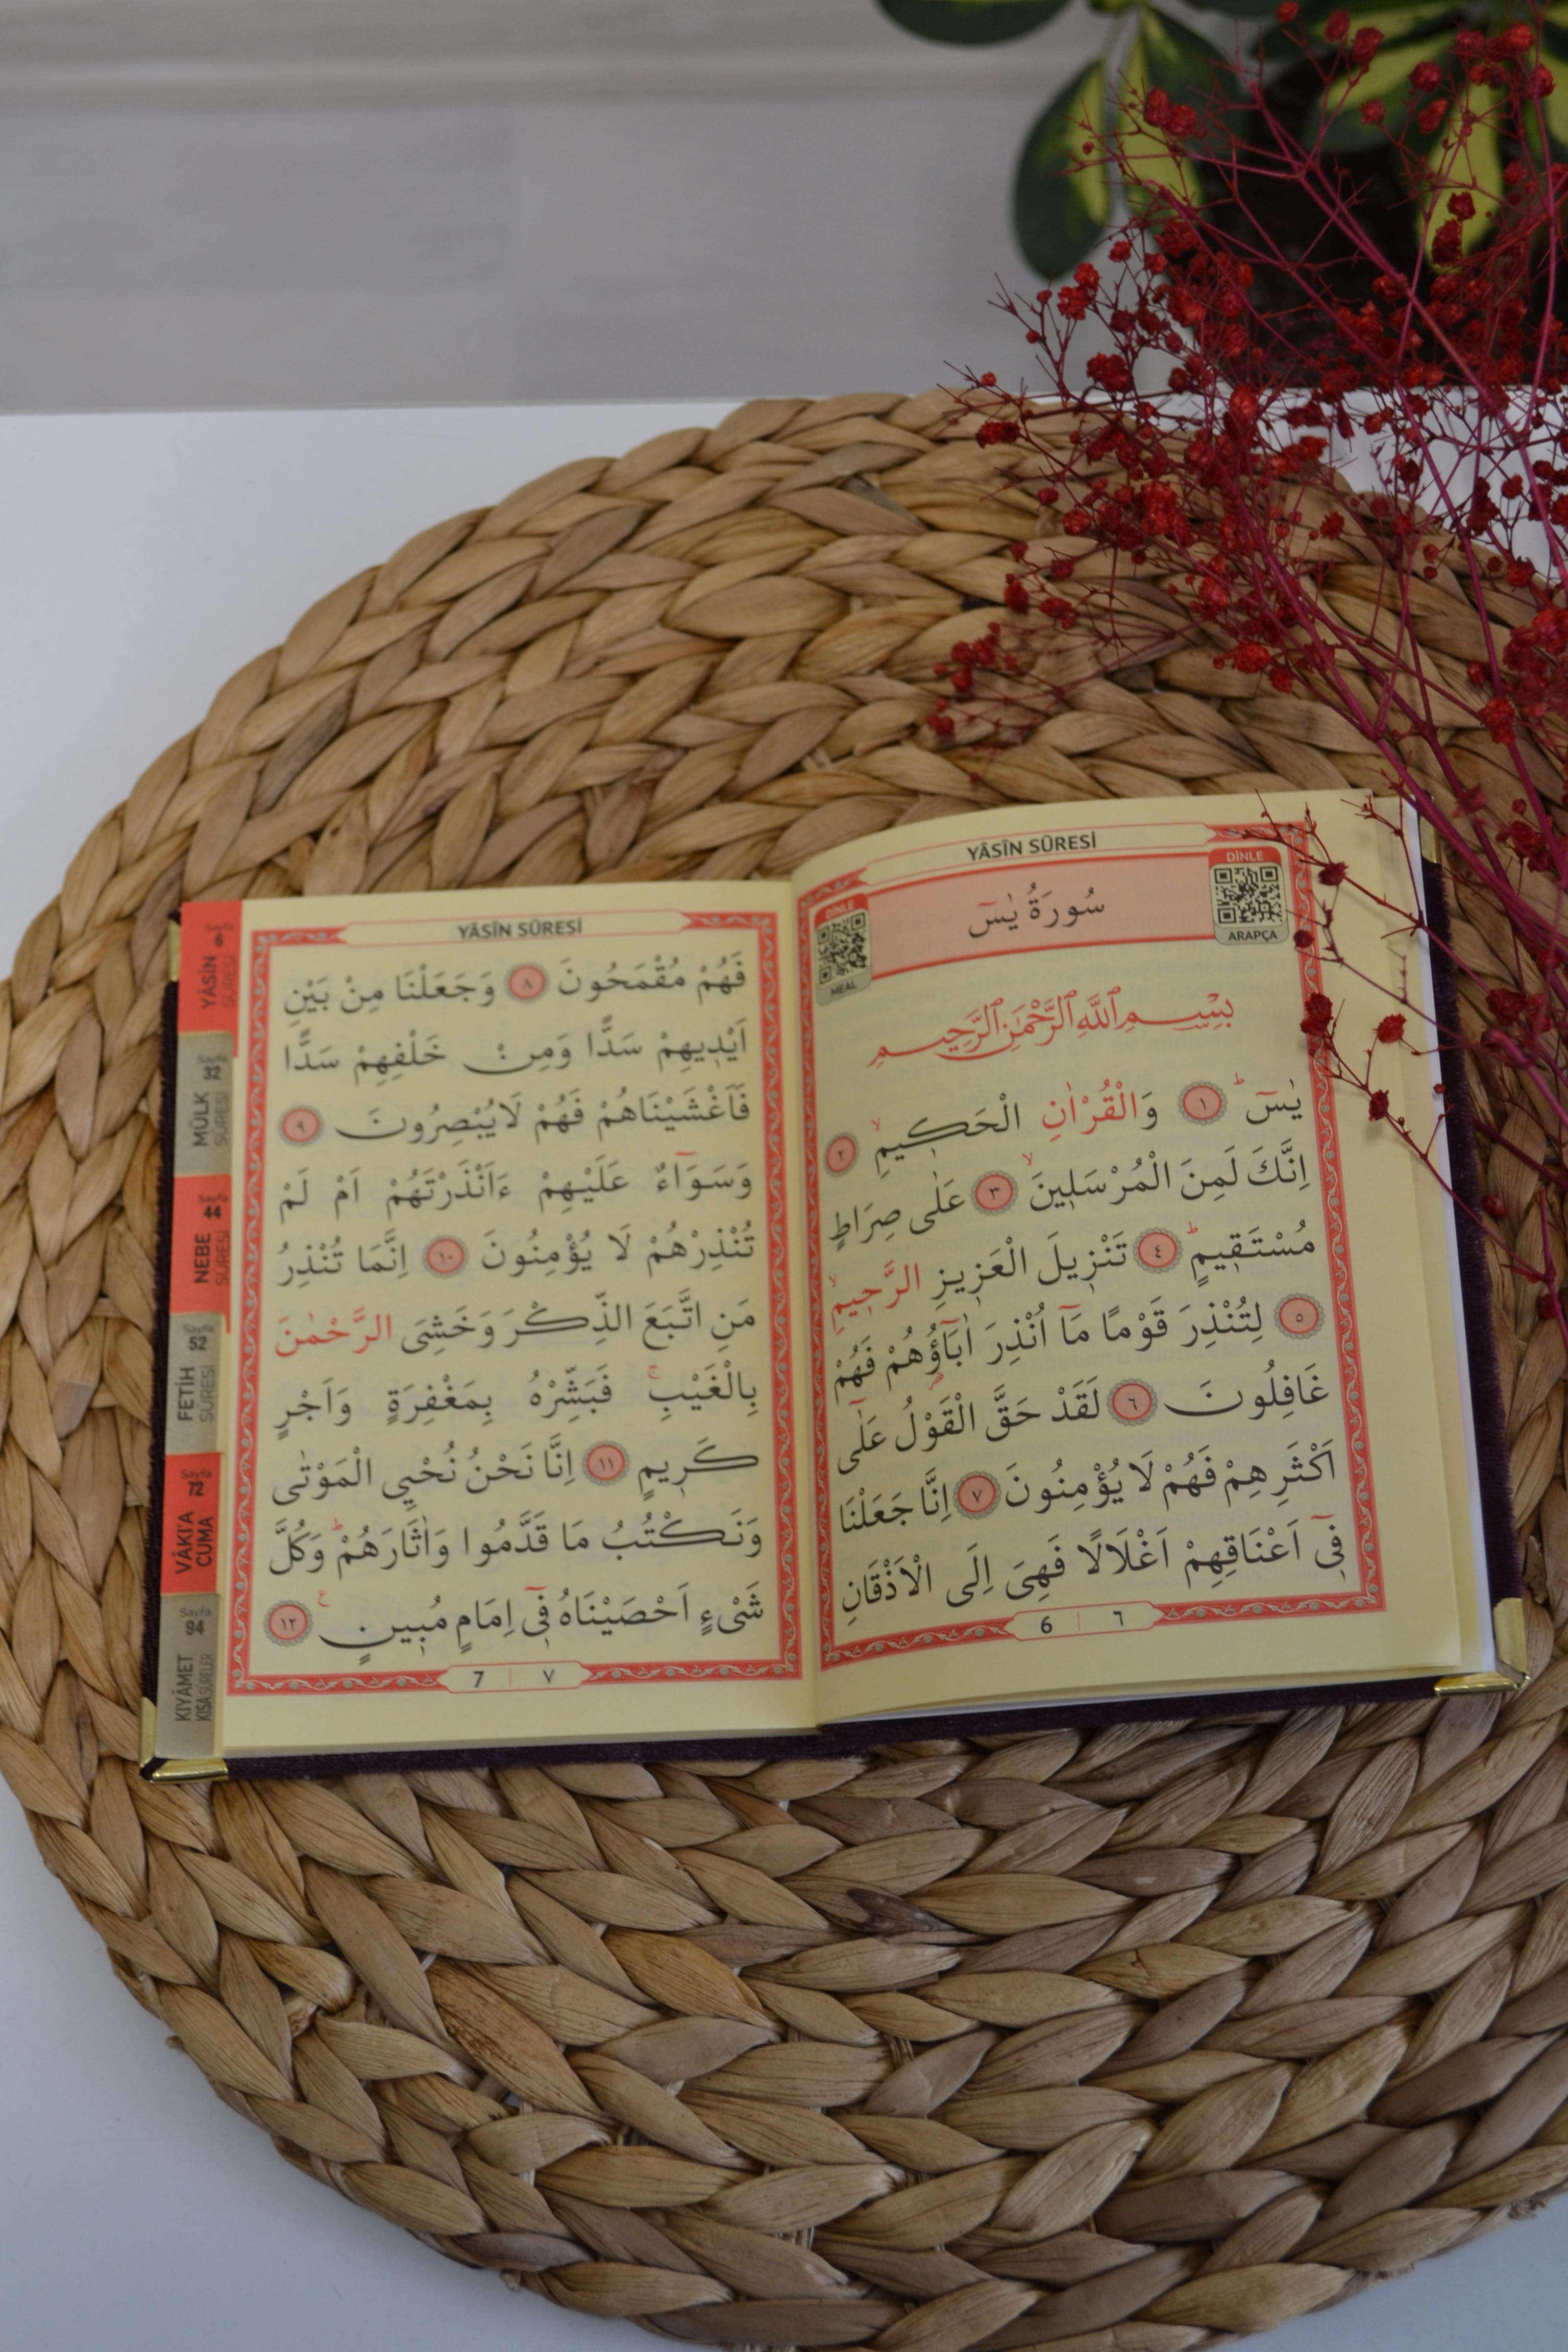 YÂSÎN SÛRESİ
DİNLE
ARAPÇA
سُورَةُ يٰسٓ
DİNLE
MEAL
بِسْمِ اللّٰهِ الرَّحْمٰنِ الرَّحِيمِ
يٰسٓ ۚ ﴿١﴾ وَالْقُرْاٰنِ الْحَكِيمِ ۙ ﴿٢﴾
اِنَّكَ لَمِنَ الْمُرْسَلِينَ ۙ ﴿٣﴾ عَلٰى صِرَاطٍ
مُسْتَقِيمٍ ۜ ﴿٤﴾ تَنْزِيلَ الْعَزِيزِ الرَّحِيمِ ۙ
﴿٥﴾ لِتُنْذِرَ قَوْمًا مَٓا اُنْذِرَ اٰبَٓاؤُهُمْ فَهُمْ
غَافِلُونَ ﴿٦﴾ لَقَدْ حَقَّ الْقَوْلُ عَلٰٓى
اَكْثَرِهِمْ فَهُمْ لَا يُؤْمِنُونَ ﴿٧﴾ اِنَّا جَعَلْنَا
فِٓى اَعْنَاقِهِمْ اَغْلَالًا فَهِىَ اِلَى الْاَذْقَانِ
6 | ٦
YÂSÎN SÛRESİ
فَهُمْ مُقْمَحُونَ ﴿٨﴾ وَجَعَلْنَا مِنْ بَيْنِ
اَيْدِيهِمْ سَدًّا وَمِنْ خَلْفِهِمْ سَدًّا
فَاَغْشَيْنَاهُمْ فَهُمْ لَايُبْصِرُونَ ﴿٩﴾
وَسَوَٓاءٌ عَلَيْهِمْ ءَاَنْذَرْتَهُمْ اَمْ لَمْ
تُنْذِرْهُمْ لَا يُؤْمِنُونَ ﴿١٠﴾ اِنَّمَا تُنْذِرُ
مَنِ اتَّبَعَ الذِّكْرَ وَخَشِىَ الرَّحْمٰنَ
بِالْغَيْبِ ۚ فَبَشِّرْهُ بِمَغْفِرَةٍ وَاَجْرٍ
كَرِيمٍ ﴿١١﴾ اِنَّا نَحْنُ نُحْيِى الْمَوْتٰى
وَنَكْتُبُ مَا قَدَّمُوا وَاٰثَارَهُمْ ۜ وَكُلَّ
شَىْءٍ اَحْصَيْنَاهُ فِٓى اِمَامٍ مُبِينٍ ۟ ﴿١٢﴾
7 | ٧
Sayfa 6
YÂSÎN SÛRESİ
Sayfa 32
MÜLK SÛRESİ
Sayfa 44
NEBE SÛRESİ
Sayfa 52
FETİH SÛRESİ
Sayfa 72
VÂKI'A CUMA
Sayfa 94
KIYÂMET KISA SÛRELER